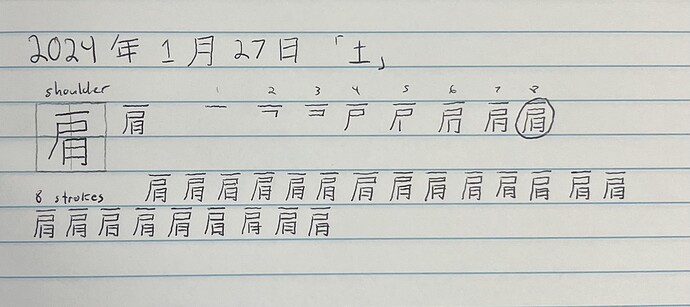 2024年1月27日「土」
shoulder 1 2 3 4 5 6 7 8
肩 肩 一 戸 肩
8 strokes 肩 肩 肩 肩 肩 肩 肩 肩 肩 肩 肩 肩 肩 肩
肩 肩 肩 肩 肩 肩 肩 肩 肩